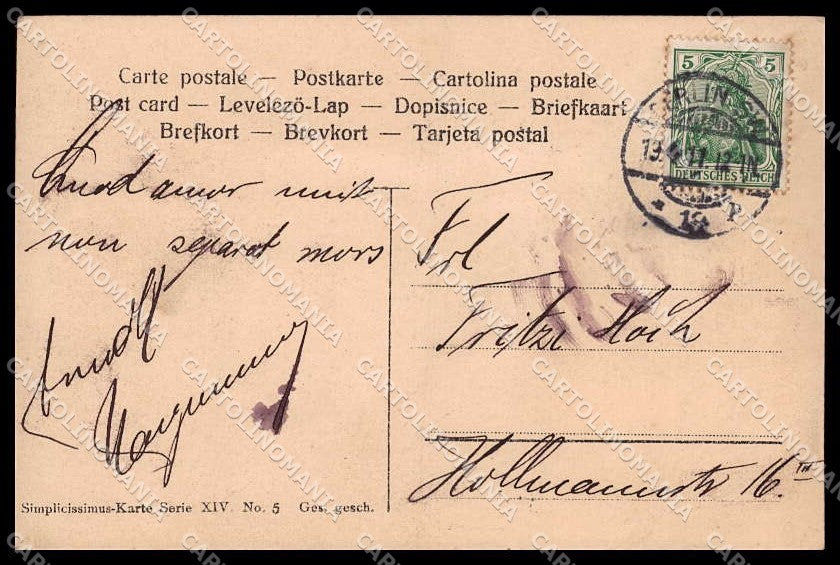 Carte postale — Postkarte — Cartolina postale
Post card — Levelezö-Lap — Dopisnice — Briefkaart
Brefkort — Brevkort — Tarjeta postal
5 5
DEUTSCHES REICH
BERLIN
19.4.11.12-1N
* 19 P
Quod amor unit
non separat mors
Frl
Fritzi Hoch
Hollmannstr 16.III
Simplicissimus-Karte Serie XIV. No. 5 Ges. gesch.
CARTOLINOMANIA